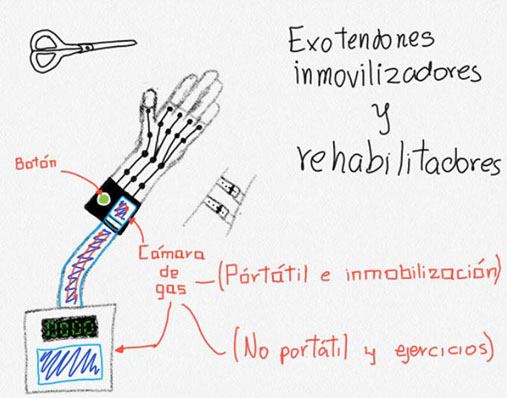 Exotendones
inmovilizadores
y
rehabilitadores
Botón
Cámara
de
gas
(Pórtátil e inmobilización)
(No portátil y ejercicios)